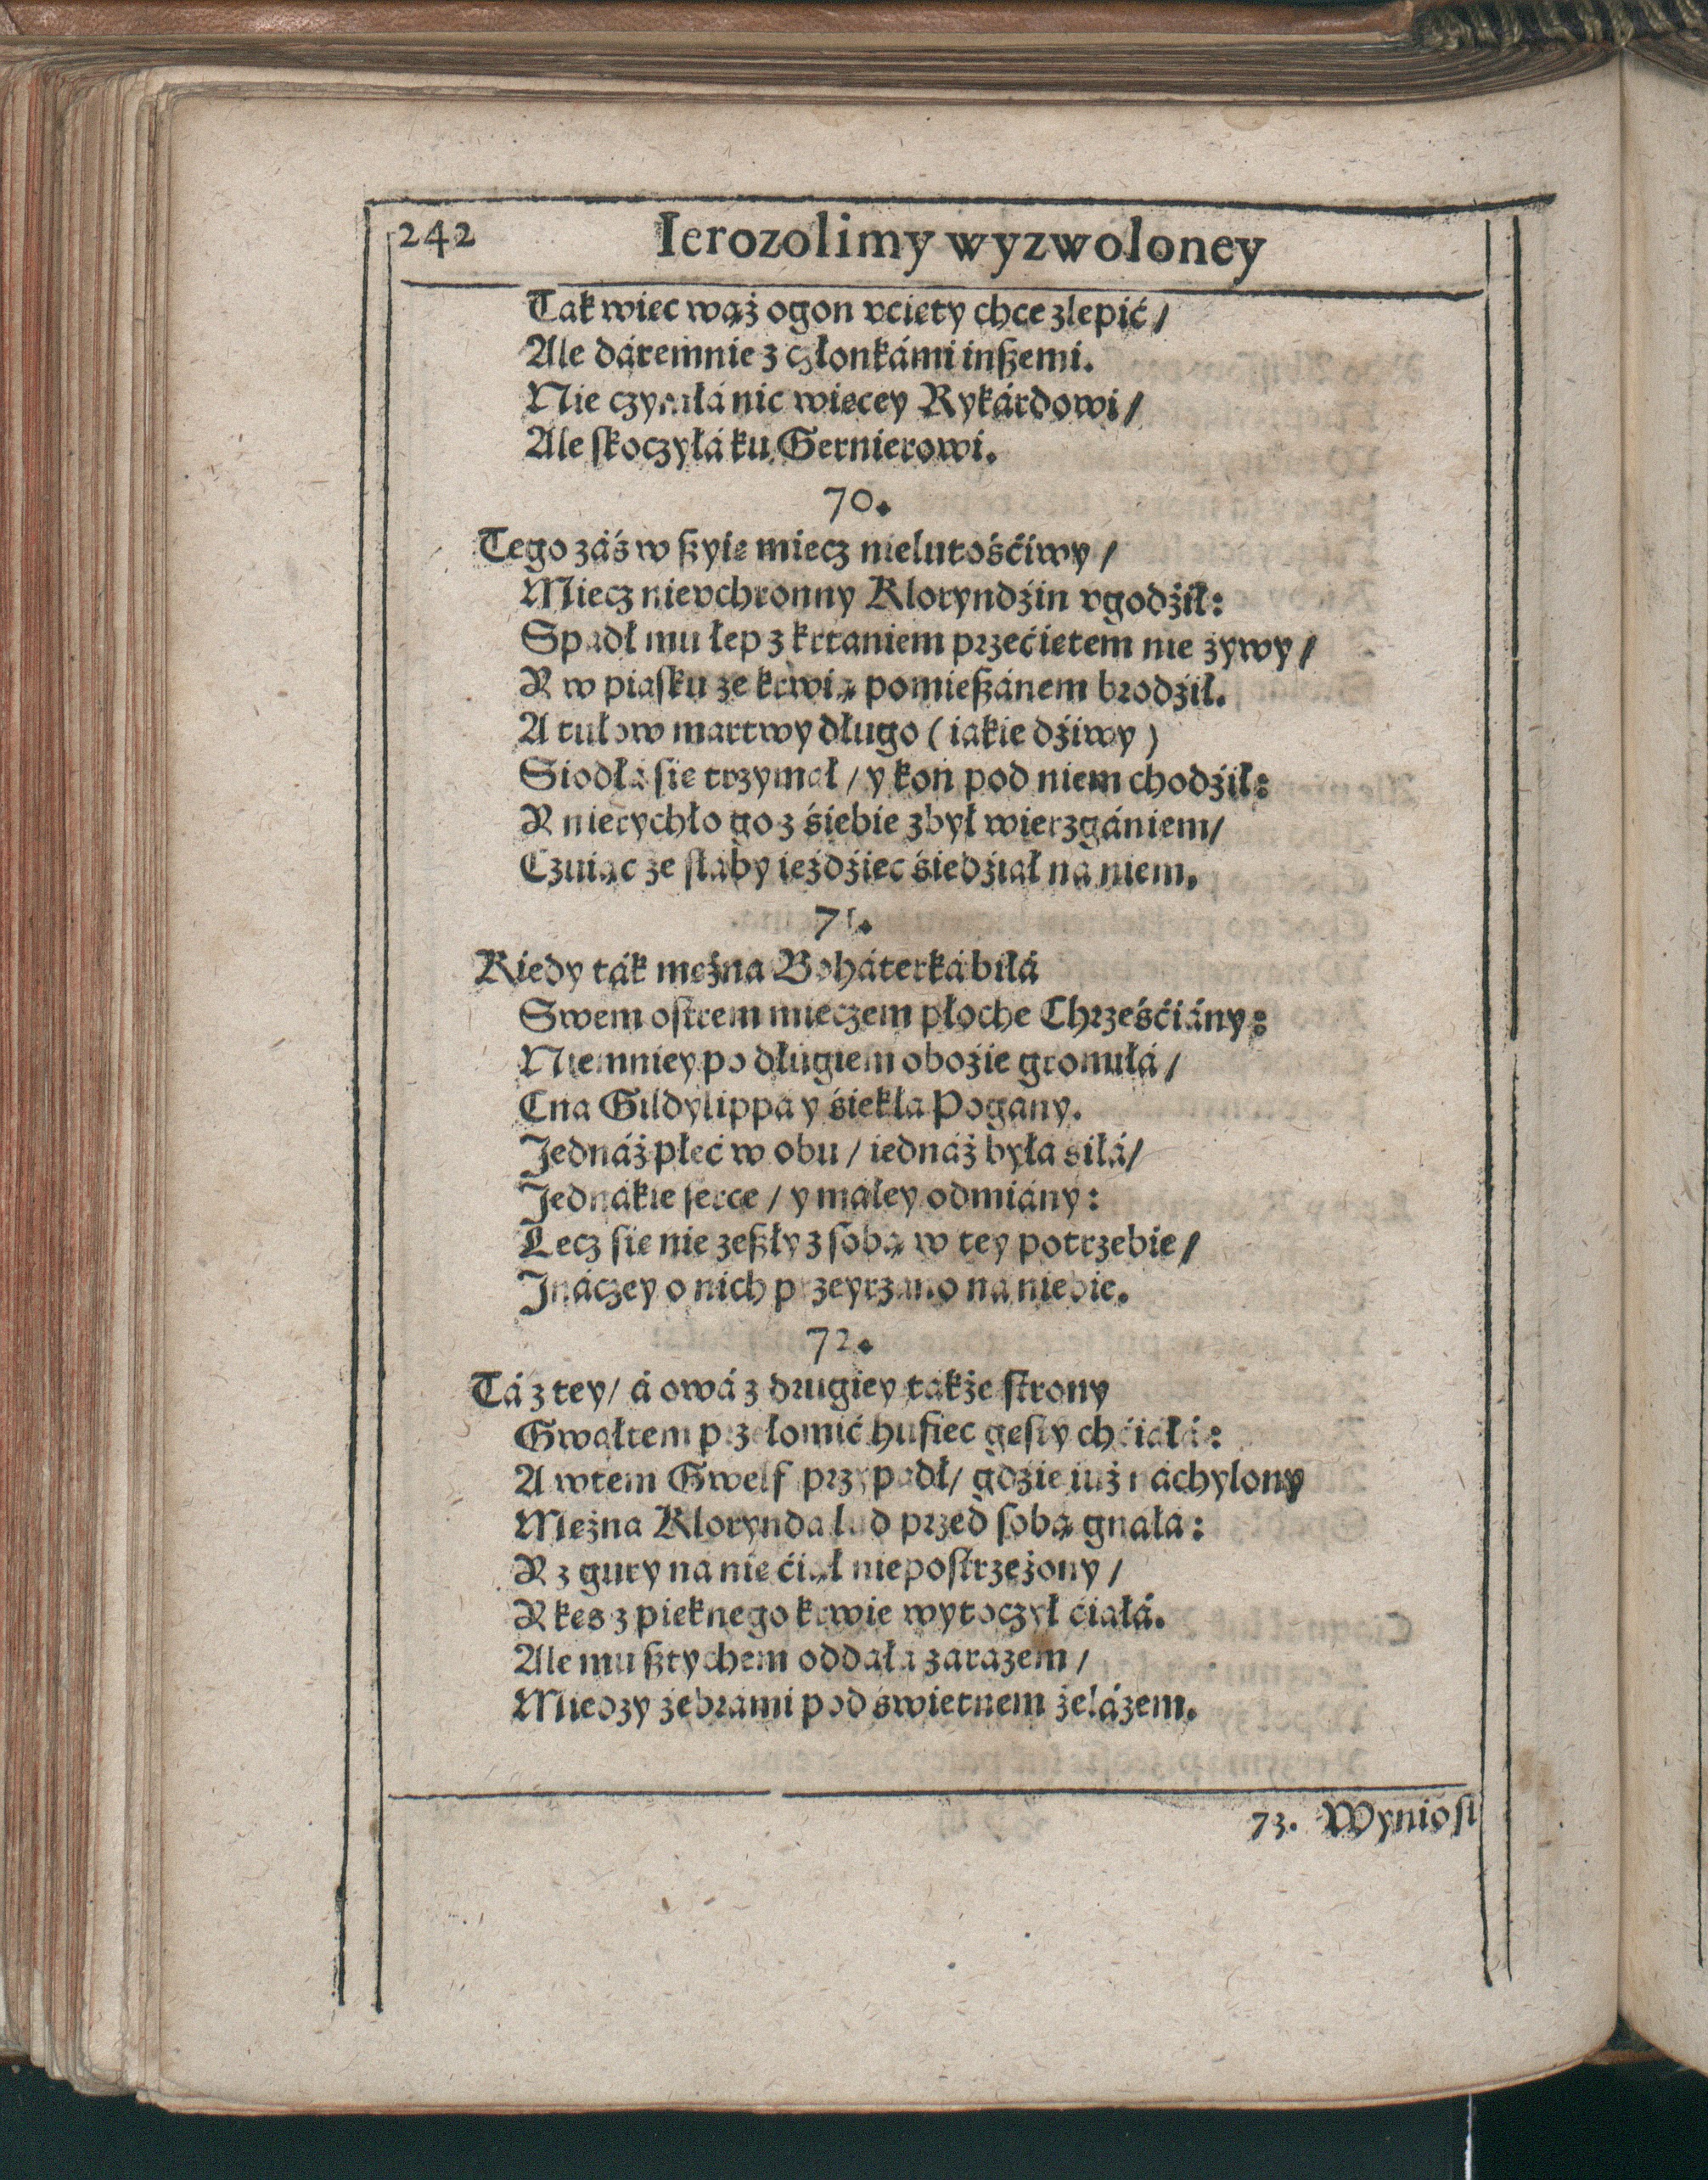 242 Ierozolimy wyzwoloney
Tak wiec wąż ogon vciety chce zlepić /
Ale dáremnie z członkámi inßemi.
Nie czyniłá nic wiecey Rykárdowi /
Ale ſkoczyłá ku Gernierowi.
70.
Tego záś w ßyie miecz nielutośćiwy /
Miecz nievchronny Kloryndźin vgodźił:
Spadł mu łep z krtaniem przećietem nie żywy /
A w piaſku ze krwią pomießánem brodźił.
A tułow martwy długo ( iakie dźiwy )
Siodłá ſie trzymał / y koń pod niem chodźił:
A nierychło go z śiebie zbył wierzgániem /
Czuiąc że ſłaby ieźdźiec śiedźiał na niem.
71.
Kiedy ták meżna Boháterká biłá
Swem oſtrem mieczem płoche Chrześćiány:
Niemniey po długiem oboźie gromiłá /
Cna Gildylippa y śiekła Pogany.
Jednáż płeć w obu / iednáż była siłá /
Jednákie ſerce / y małey odmiány:
Lecz ſie nie zeßły z ſobą w tey potrzebie /
Jnáczey o nich przeyrzano na niebie.
72.
Tá z tey / á owá z drugiey także ſtrony
Gwałtem przełomić hufiec geſty chćiáłá:
A wtem Gwelf przypadł / gdzie iuż náchylony
Meżna Klorynda lud przed ſobą gnała:
A z gury na nie ćiął niepoſtrzeżony /
A kes z pieknego krwie wytoczył ćiałá.
Ale mu ßtychem oddała zarazem /
Miedzy żebrami pod świetnem żelázem.
73. Wynioſł